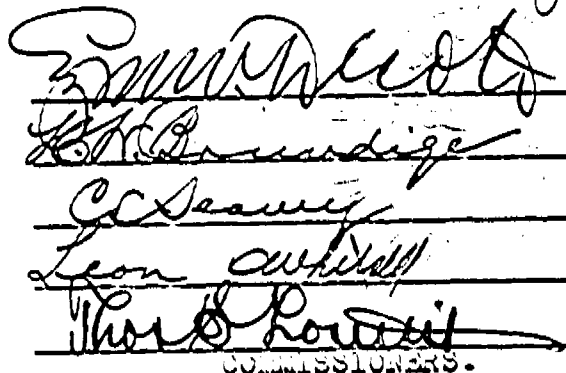 H. W. Brundige
C C Seavey
Leon Whitsell
Thos S Louttit
COMMISSIONERS.